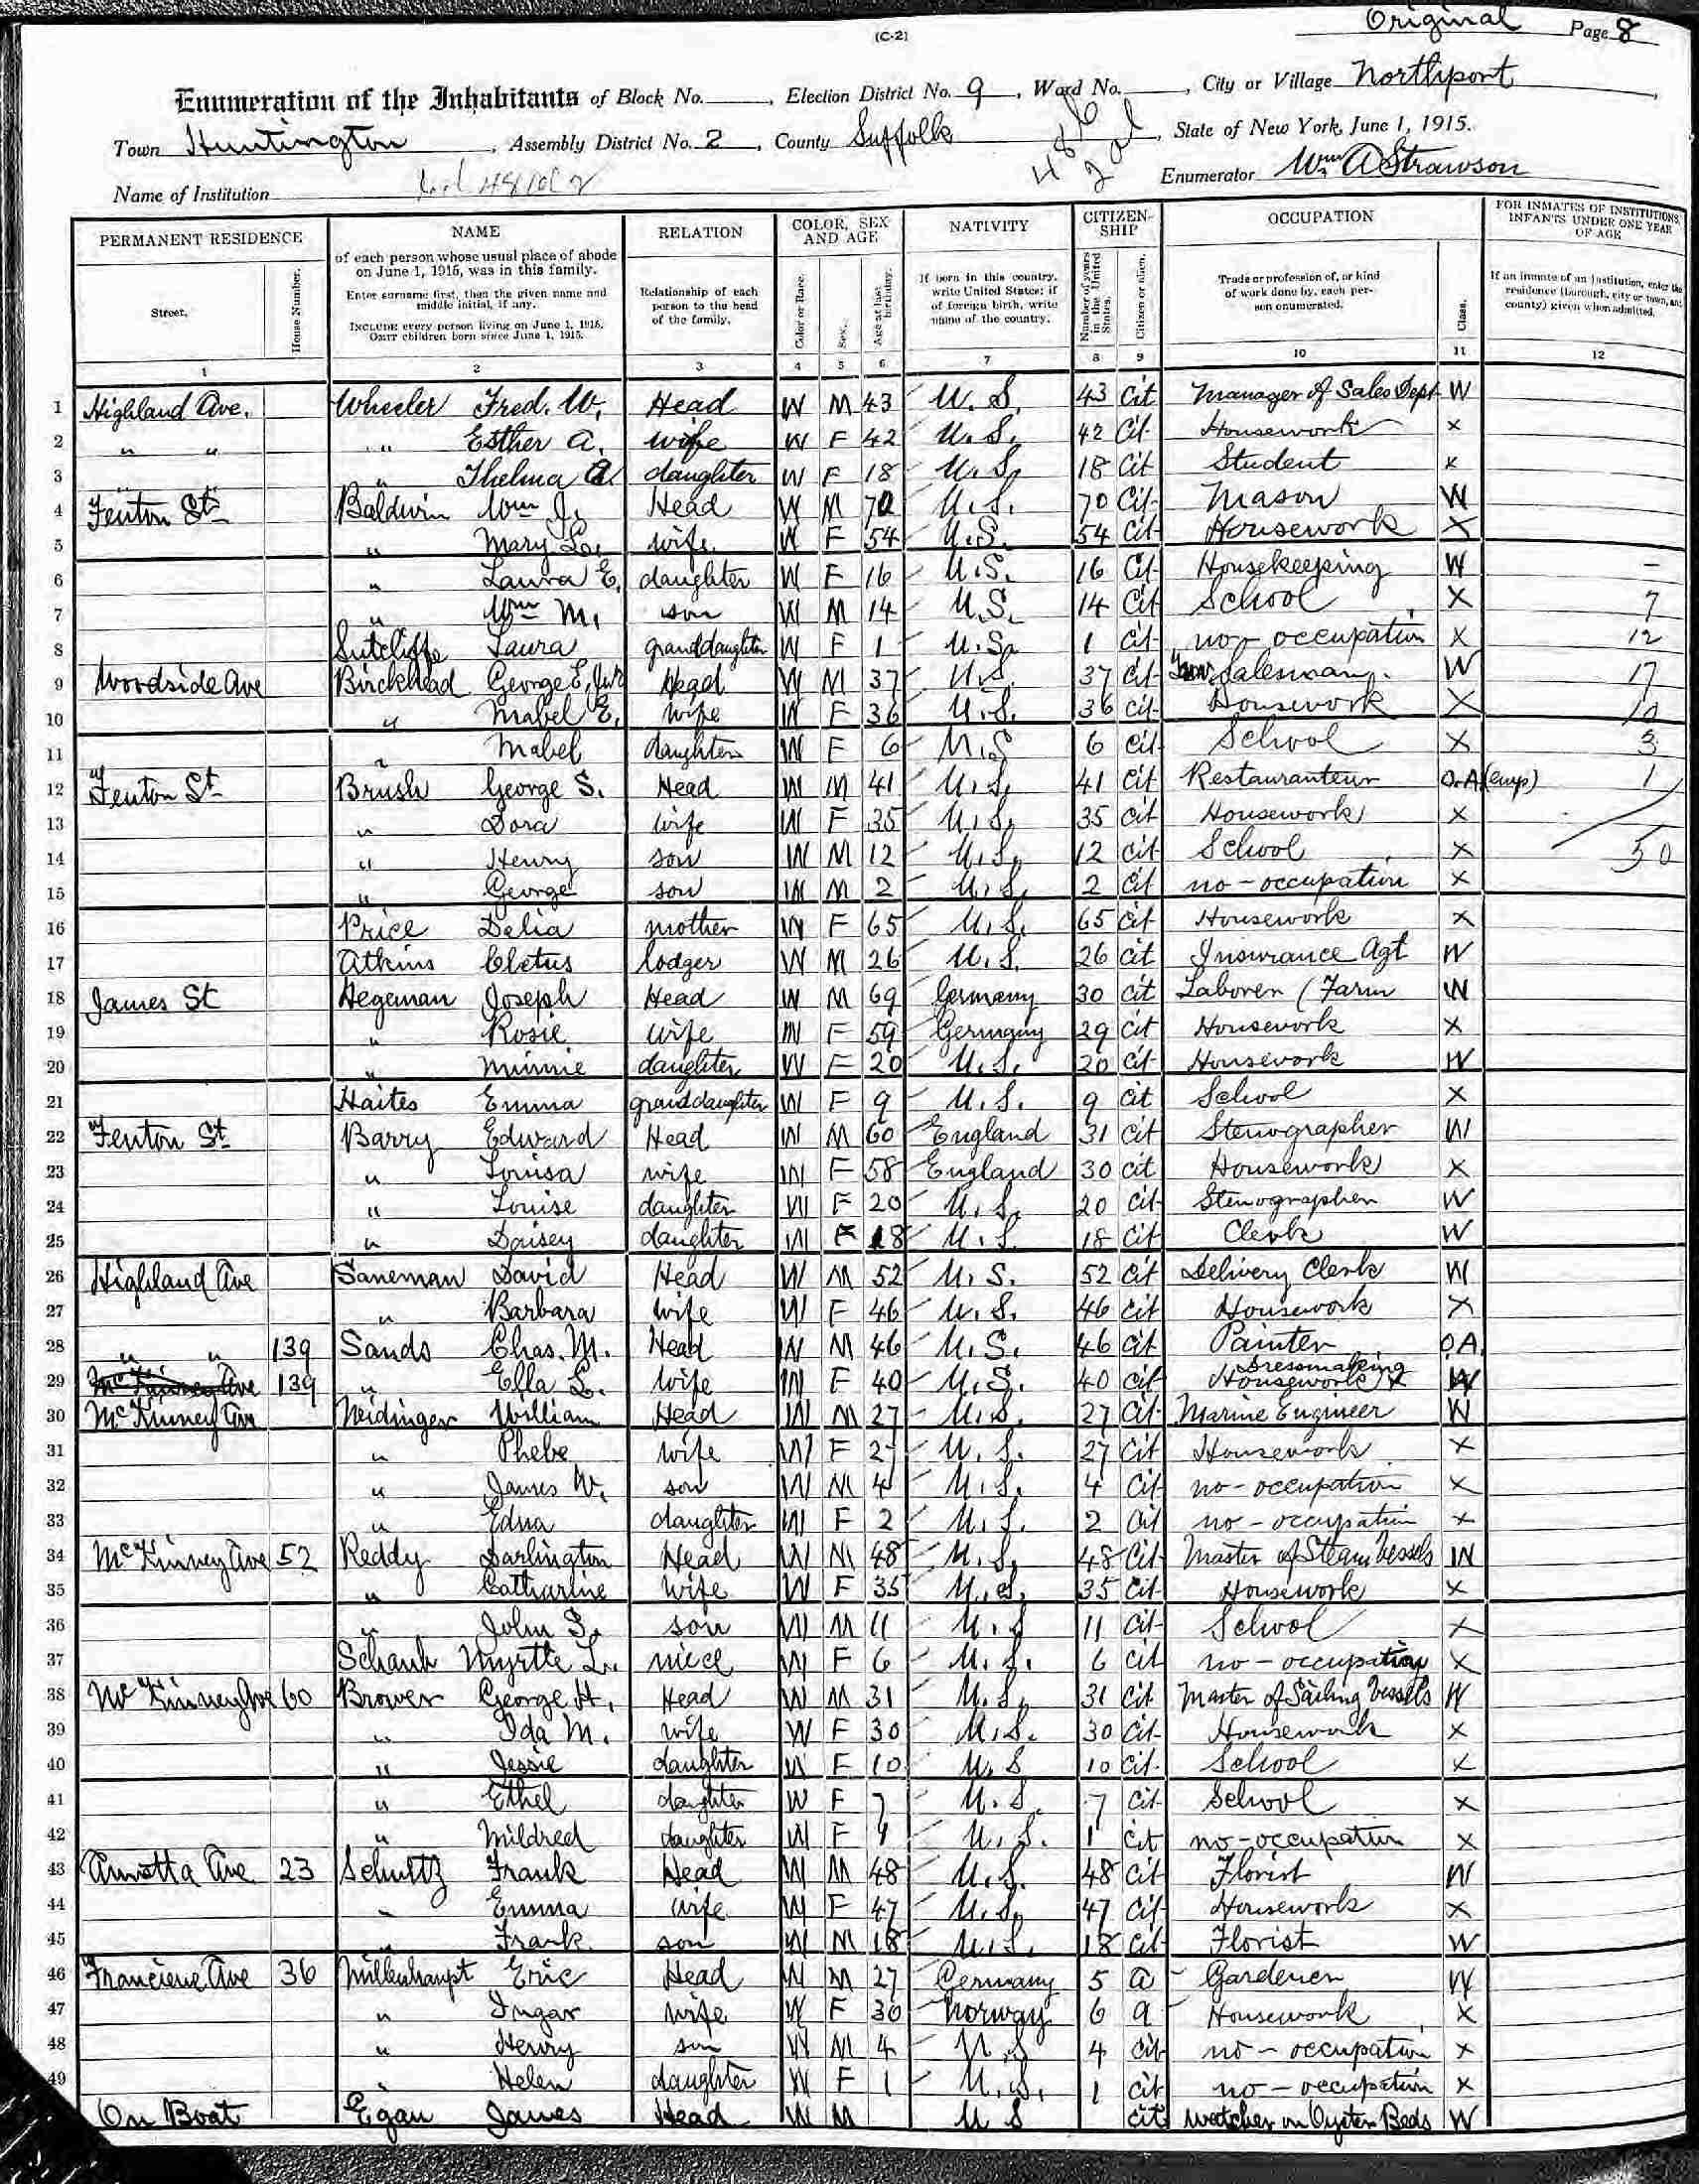 Original Page 8
(C-2)
Enumeration of the Inhabitants of Block No. , Election District No. 9 , Ward No. , City or Village Northport ,
Town Huntington , Assembly District No. 2 , County Suffolk , State of New York, June 1, 1915.
Name of Institution Enumerator Wm A Strawson
PERMANENT RESIDENCE NAME RELATION COLOR, SEX AND AGE NATIVITY CITIZEN-SHIP OCCUPATION FOR INMATES OF INSTITUTIONS, INFANTS UNDER ONE YEAR OF AGE
Street. House Number. of each person whose usual place of abode on June 1, 1915, was in this family. Enter surname first, then the given name and middle initial, if any. INCLUDE every person living on June 1, 1915. OMIT children born since June 1, 1915. Relationship of each person to the head of the family. Color or Race. Sex. Age at last birthday. If born in this country, write United States; if of foreign birth, write name of the country. Number of years in the United States. Citizen or alien. Trade or profession of, or kind of work done by, each person enumerated. Class. If an inmate of an institution, enter the residence (borough, city or town, and county) given when admitted.
1 2 3 4 5 6 7 8 9 10 11 12
1 Highland Ave. Wheeler Fred. W. Head W M 43 U.S. 43 Cit Manager of Sales Dept W
2 " " " Esther A. wife W F 42 U.S. 42 Cit Housework x
3 " " " Thelma A daughter W F 18 U.S. 18 Cit Student x
4 Fenton St Baldwin Wm J. Head W M 70 U.S. 70 Cit Mason W
5 " Mary L. wife W F 54 U.S. 54 Cit Housework X
6 " Laura E. daughter W F 16 U.S. 16 Cit Housekeeping W -
7 " Wm M. son W M 14 U.S. 14 Cit School X 7
8 Sutcliffe Laura granddaughter W F 1 U.S. 1 Cit no-occupation X 12
9 Woodside Ave Birckhead George E. Jnr Head W M 37 U.S. 37 Cit Salesman W 17
10 " Mabel E. wife W F 36 U.S. 36 Cit Housework X 10
11 " Mabel daughter W F 6 U.S 6 Cit School X 3
12 Fenton St Brush George S. Head W M 41 U.S. 41 Cit Restauranteur O.A (emp) 1
13 " Dora wife W F 35 U.S. 35 Cit Housework x
14 " Henry son W M 12 U.S. 12 Cit School x 50
15 " George son W M 2 U.S. 2 Cit no-occupation x
16 Price Delia mother W F 65 U.S. 65 Cit Housework x
17 Atkins Cletus lodger W M 26 U.S. 26 Cit Insurance Agt W
18 James St Hegeman Joseph Head W M 69 Germany 30 Cit Laborer (Farm W
19 " Rosie wife W F 59 Germany 29 Cit Housework x
20 " Minnie daughter W F 20 U.S. 20 Cit Housework W
21 Haites Emma granddaughter W F 9 U.S. 9 Cit School x
22 Fenton St Barry Edward Head W M 60 England 31 Cit Stenographer W
23 " Louisa wife W F 58 England 30 Cit Housework x
24 " Louise daughter W F 20 U.S. 20 Cit Stenographer W
25 " Daisey daughter W F 18 U.S. 18 Cit Clerk W
26 Highland Ave Saneman David Head W M 52 U.S. 52 Cit Delivery Clerk W
27 " Barbara wife W F 46 U.S. 46 Cit Housework x
28 " " 139 Sands Chas. M. Head W M 46 U.S. 46 Cit Painter O.A.
29 McKinney Ave 139 " Ella L. wife W F 40 U.S. 40 Cit Dressmaking Housework x W
30 McKinney Ave Neidinger William Head W M 27 U.S. 27 Cit Marine Engineer W
31 " Phebe wife W F 27 U.S. 27 Cit Housework x
32 " James W. son W M 4 U.S. 4 Cit no-occupation x
33 " Edna daughter W F 2 U.S. 2 Cit no-occupation x
34 McKinney Ave 52 Reddy Darlington Head W M 48 U.S. 48 Cit Master of Steam Vessels W
35 " Catharine wife W F 35 U.S. 35 Cit Housework x
36 " John S. son W M 11 U.S 11 Cit School x
37 Schanh Myrtle L. niece W F 6 U.S. 6 Cit no-occupation x
38 McKinney Ave 60 Brower George H. Head W M 31 U.S. 31 Cit Master of Sailing Vessels W
39 " Ida M. wife W F 30 U.S. 30 Cit Housework x
40 " Jessie daughter W F 10 U.S 10 Cit School x
41 " Ethel daughter W F 7 U.S. 7 Cit School x
42 " Mildred daughter W F 1 U.S. 1 Cit no-occupation x
43 Ave 23 Schultz Frank Head W M 48 U.S. 48 Cit Florist W
44 " Emma wife W F 47 U.S. 47 Cit Housework x
45 " Frank son W M 18 U.S. 18 Cit Florist W
46 Franciene Ave 36 Millenhaupt Eric Head W M 27 Germany 5 a Gardener W
47 " Ingar wife W F 30 Norway 6 a Housework x
48 " Henry son W M 4 U.S 4 Cit no-occupation x
49 " Helen daughter W F 1 U.S. 1 cit no-occupation x
On Boat Egan James Head W M U S cit Watcher on Oyster Beds W